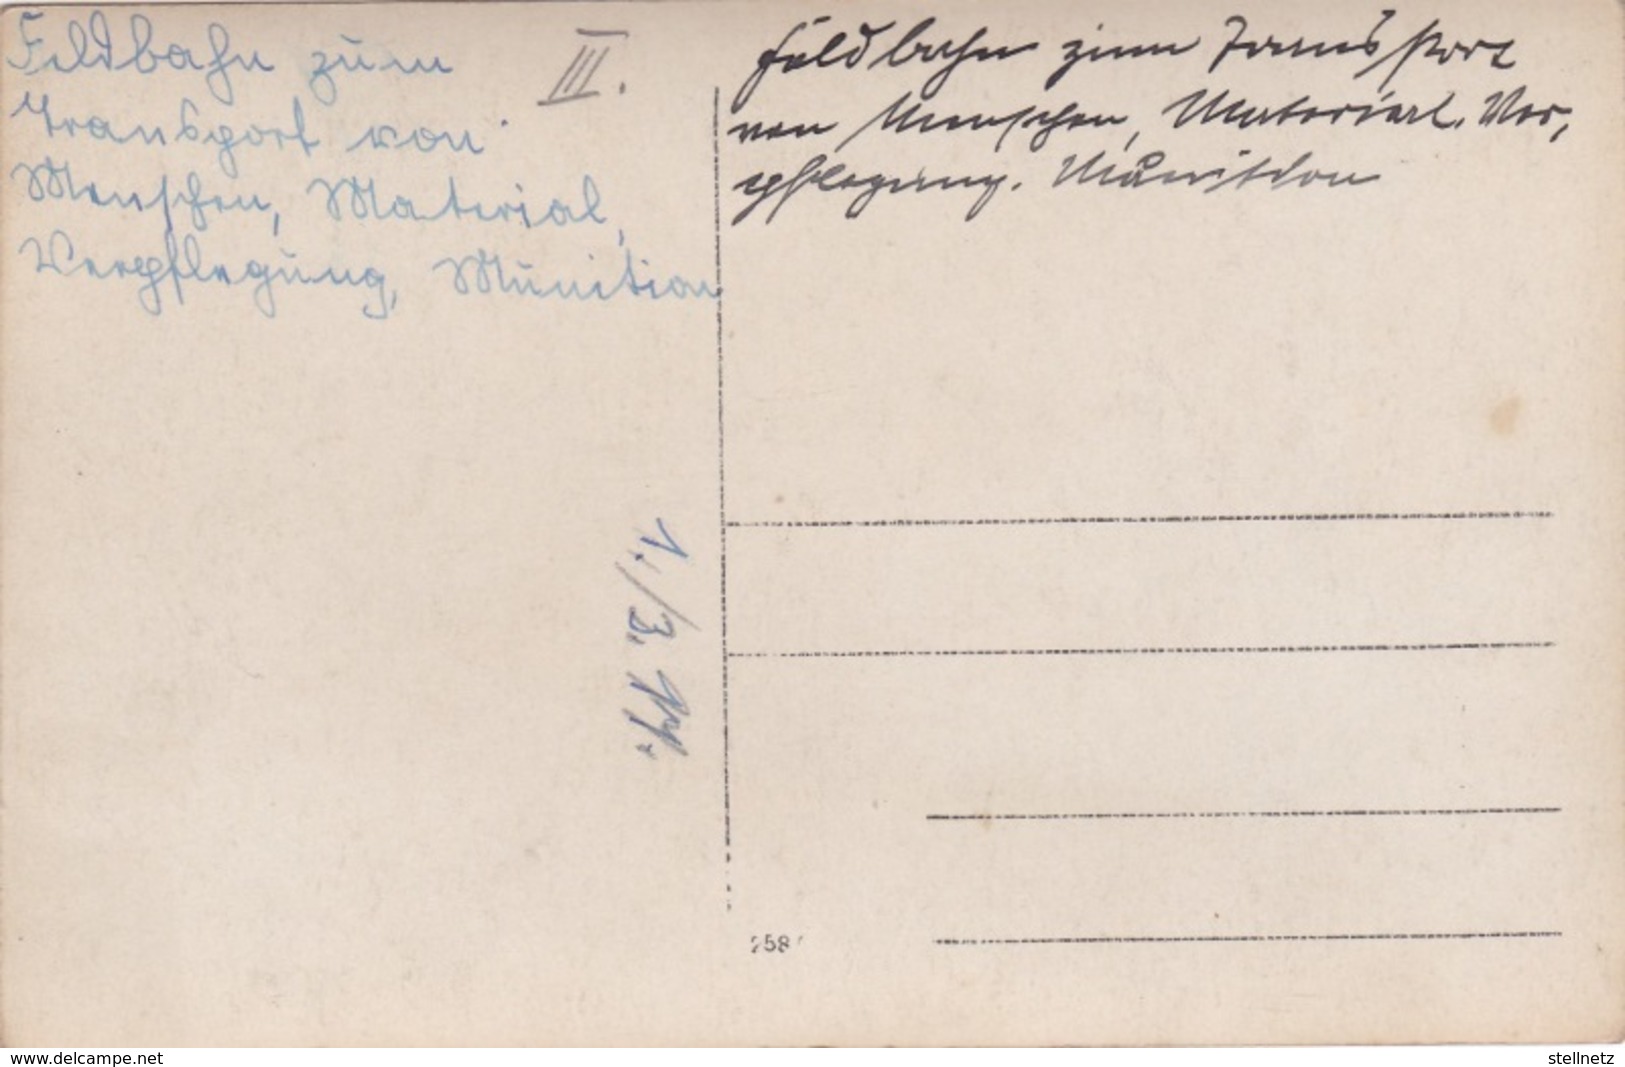 Feldbahn zum
Transport von
Menschen, Material,
Verpflegung, Munition
III.
Feldbahn zum Transport
von Menschen, Material. Ver,
pflegung. Munition
1./3.
258
www.delcampe.net
stellnetz